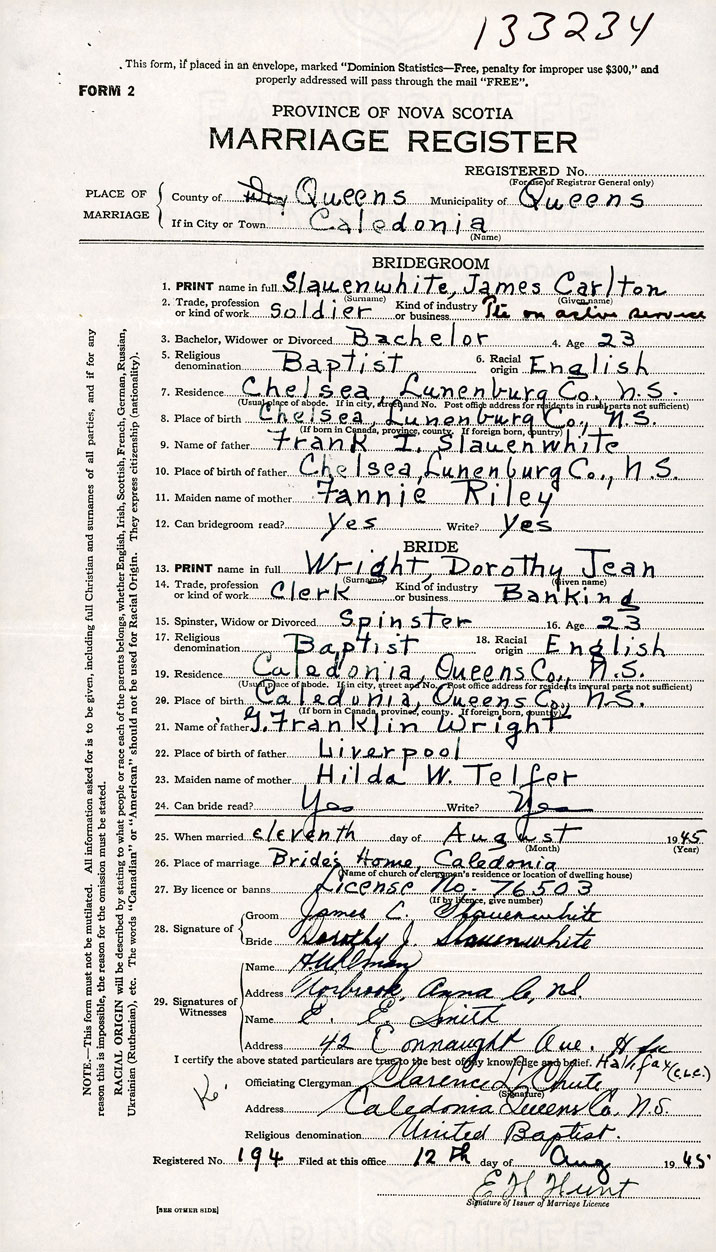 133234
This form, if placed in an envelope, marked "Dominion Statistics—Free, penalty for improper use $300," and
properly addressed will pass through the mail "FREE".
FORM 2
PROVINCE OF NOVA SCOTIA
MARRIAGE REGISTER
REGISTERED No.
(For use of Registrar General only)
PLACE OF MARRIAGE
County of Queens Municipality of Queens
If in City or Town Caledonia
(Name)
BRIDEGROOM
1. PRINT name in full Slauenwhite, James Carlton
(Surname) (Given name)
2. Trade, profession or kind of work Soldier Kind of industry or business Pte on active service
3. Bachelor, Widower or Divorced Bachelor 4. Age 23
5. Religious denomination Baptist 6. Racial origin English
7. Residence Chelsea, Lunenburg Co., N.S.
(Usual place of abode. If in city, street and No. Post office address for residents in rural parts not sufficient)
8. Place of birth Chelsea, Lunenburg Co., N.S.
(If born in Canada, province, county. If foreign born, country)
9. Name of father Frank I. Slauenwhite
10. Place of birth of father Chelsea, Lunenburg Co., N.S.
11. Maiden name of mother Fannie Riley
12. Can bridegroom read? Yes Write? Yes
BRIDE
13. PRINT name in full Wright, Dorothy Jean
(Surname) (Given name)
14. Trade, profession or kind of work Clerk Kind of industry or business Banking
15. Spinster, Widow or Divorced Spinster 16. Age 23
17. Religious denomination Baptist 18. Racial origin English
19. Residence Caledonia, Queens Co., N.S.
(Usual place of abode. If in city, street and No. Post office address for residents in rural parts not sufficient)
20. Place of birth Caledonia, Queens Co., N.S.
(If born in Canada, province, county. If foreign born, country)
21. Name of father G. Franklin Wright
22. Place of birth of father Liverpool
23. Maiden name of mother Hilda W. Telfer
24. Can bride read? Yes Write? Yes
25. When married eleventh day of August 1945
(Month) (Year)
26. Place of marriage Bride's Home, Caledonia
(Name of church or clergyman's residence or location of dwelling house)
27. By licence or banns License No. 76503
(If by licence, give number)
28. Signature of
Groom James C. Slauenwhite
Bride Dorothy J. Slauenwhite
29. Signatures of Witnesses
Name
Address Torbrook, Anna Co, N.S.
Name E. E. Smith
Address 42 Connaught Ave. Hfx
I certify the above stated particulars are true to the best of my knowledge and belief. Halifax (C.L.C.)
Officiating Clergyman Clarence L. Chute
(Signature)
Address Caledonia Queens Co. N.S.
Religious denomination United Baptist.
Registered No. 194 Filed at this office 12th day of Aug 1945
E H Hunt
Signature of Issuer of Marriage Licence
[SEE OTHER SIDE]
NOTE.—This form must not be mutilated. All information asked for is to be given, including full Christian and surnames of all parties, and if for any
reason this is impossible, the reason for the omission must be stated.
RACIAL ORIGIN will be described by stating to what people or race each of the parents belongs, whether English, Irish, Scottish, French, German, Russian,
Ukrainian (Ruthenian), etc. The words "Canadian" or "American" should not be used for Racial Origin. They express citizenship (nationality).